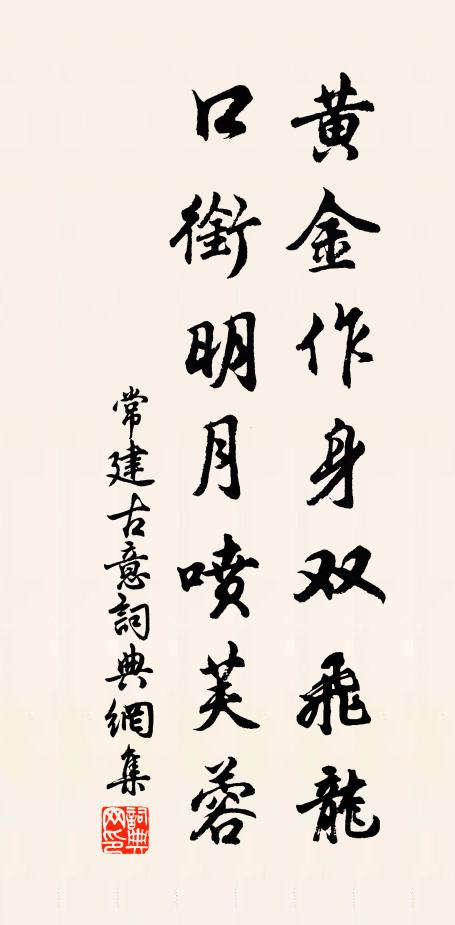 黄金作身双飛龍
口銜明月噴芙蓉
常建古意詞典網集
詞典
网印